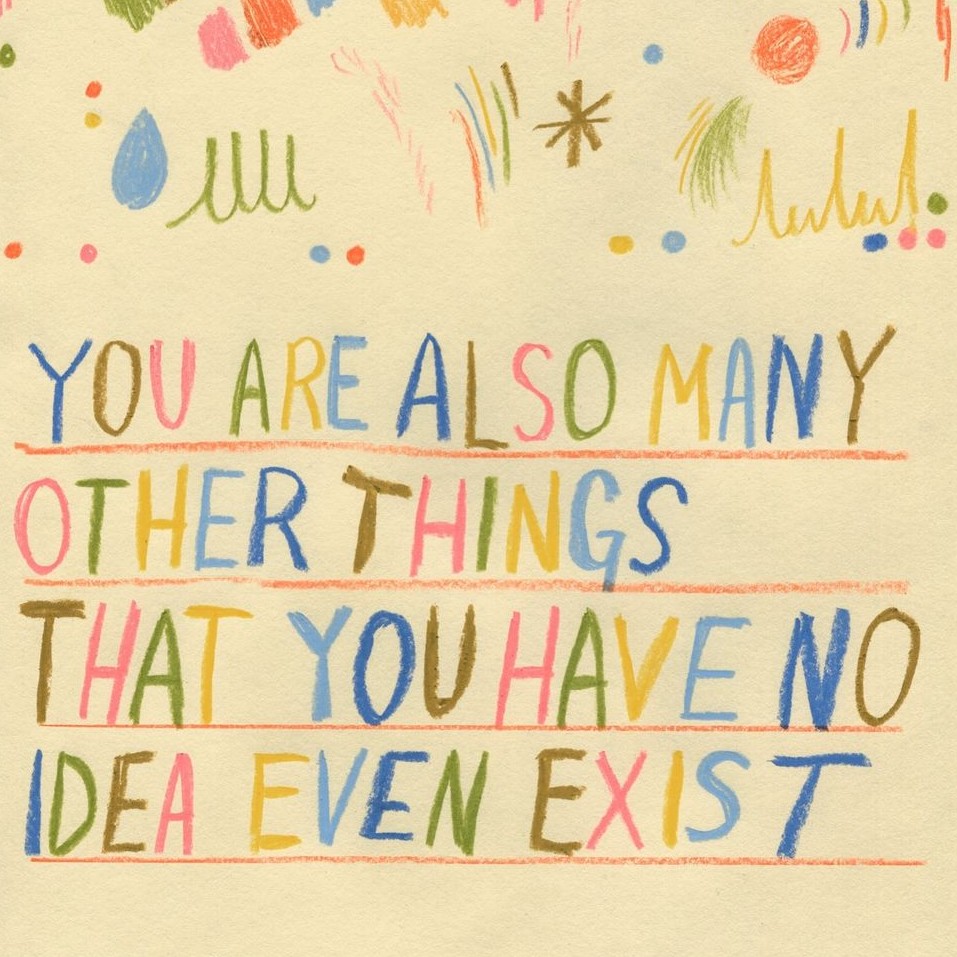 YOU ARE ALSO MANY
OTHER THINGS
THAT YOU HAVE NO
IDEA EVEN EXIST